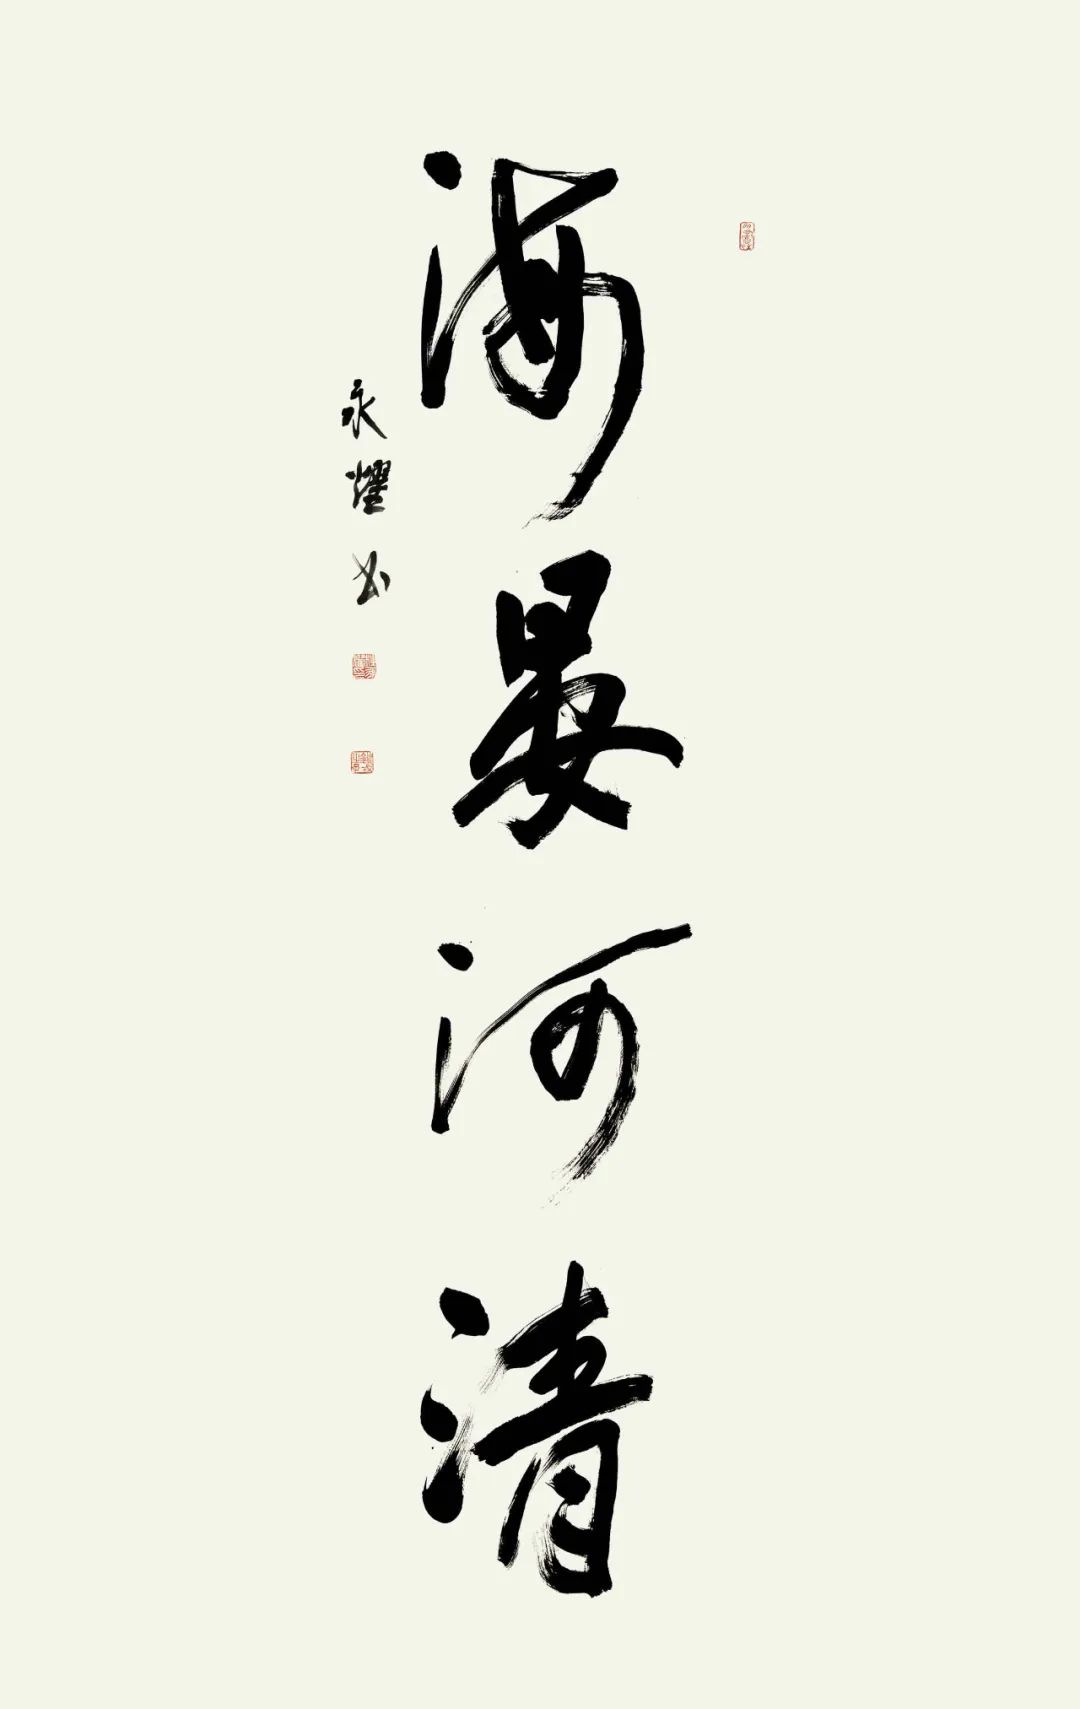 海晏河清
永耀书